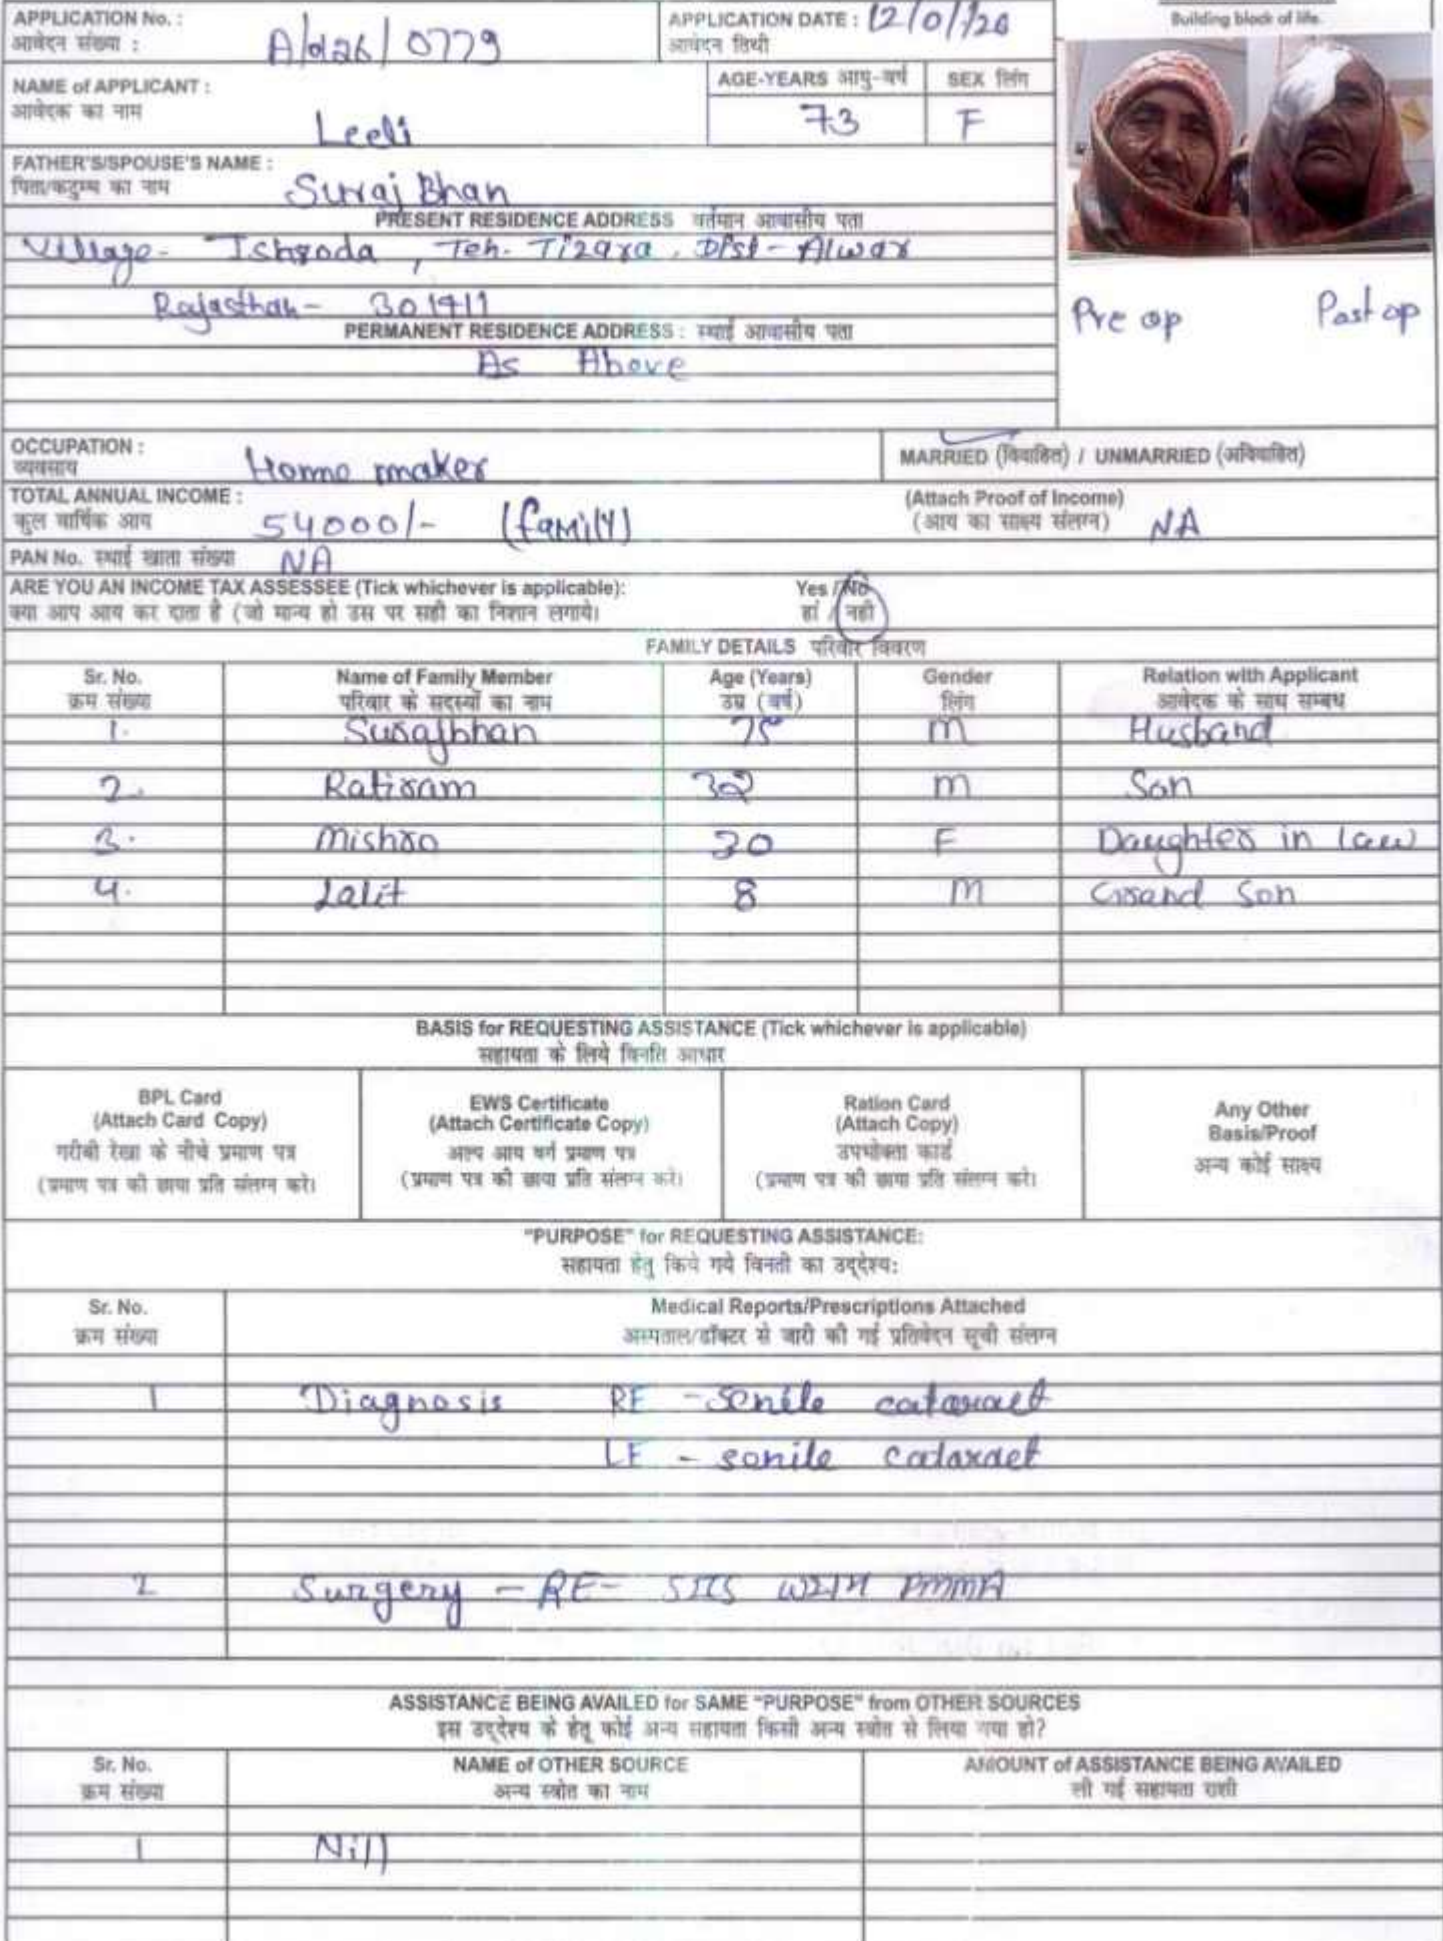 Building block of life.
APPLICATION No. :
आवेदन संख्या :
0779
APPLICATION DATE :
आवेदन तिथी
NAME of APPLICANT :
आवेदक का नाम
Leeli
AGE-YEARS आयु-वर्ष
73
SEX लिंग
F
FATHER'S/SPOUSE'S NAME :
पिता/कटुम्ब का नाम
Suraj Bhan
PRESENT RESIDENCE ADDRESS वर्तमान आवासीय पता
Village- , Teh. , Dist- Alwar
Rajasthan- 301411
Pre op
Post op
PERMANENT RESIDENCE ADDRESS : स्थाई आवासीय पता
As Above
OCCUPATION :
व्यवसाय
Home maker
MARRIED (विवाहित) / UNMARRIED (अविवाहित)
TOTAL ANNUAL INCOME :
कुल वार्षिक आय
54000/- (family)
(Attach Proof of Income)
(आय का साक्ष्य संलग्न) NA
PAN No. स्थाई खाता संख्या NA
ARE YOU AN INCOME TAX ASSESSEE (Tick whichever is applicable): Yes / No
क्या आप आय कर दाता है (जो मान्य हो उस पर सही का निशान लगाये। हां / नही
FAMILY DETAILS परिवार विवरण
Sr. No. Name of Family Member Age (Years) Gender Relation with Applicant
क्रम संख्या परिवार के सदस्यों का नाम उम्र (वर्ष) लिंग आवेदक के साथ सम्बध
1. Surajbhan 75 M Husband
2. Ratiram 32 M Son
3. Mishro 30 F Daughter in law
4. Lalit 8 M Grand Son
BASIS for REQUESTING ASSISTANCE (Tick whichever is applicable)
सहायता के लिये विनति आधार
BPL Card
(Attach Card Copy)
गरीबी रेखा के नीचे प्रमाण पत्र
(प्रमाण पत्र की छाया प्रति संलग्न करे।
EWS Certificate
(Attach Certificate Copy)
अल्प आय वर्ग प्रमाण पत्र
(प्रमाण पत्र की छाया प्रति संलग्न करे।
Ration Card
(Attach Copy)
उपभोक्ता कार्ड
(प्रमाण पत्र की छाया प्रति संलग्न करे।
Any Other
Basis/Proof
अन्य कोई साक्ष्य
"PURPOSE" for REQUESTING ASSISTANCE:
सहायता हेतु किये गये विनती का उद्देश्य:
Sr. No. Medical Reports/Prescriptions Attached
क्रम संख्या अस्पताल/डॉक्टर से जारी की गई प्रतिवेदन सूची संलग्न
1 Diagnosis RE - senile cataract
LE - senile cataract
2 Surgery - RE- SICS WITH PMMA
ASSISTANCE BEING AVAILED for SAME "PURPOSE" from OTHER SOURCES
इस उद्देश्य के हेतू कोई अन्य सहायता किसी अन्य स्त्रोत से लिया गया हो?
Sr. No. NAME of OTHER SOURCE AMOUNT of ASSISTANCE BEING AVAILED
क्रम संख्या अन्य स्त्रोत का नाम ली गई सहायता राशी
1 Nill